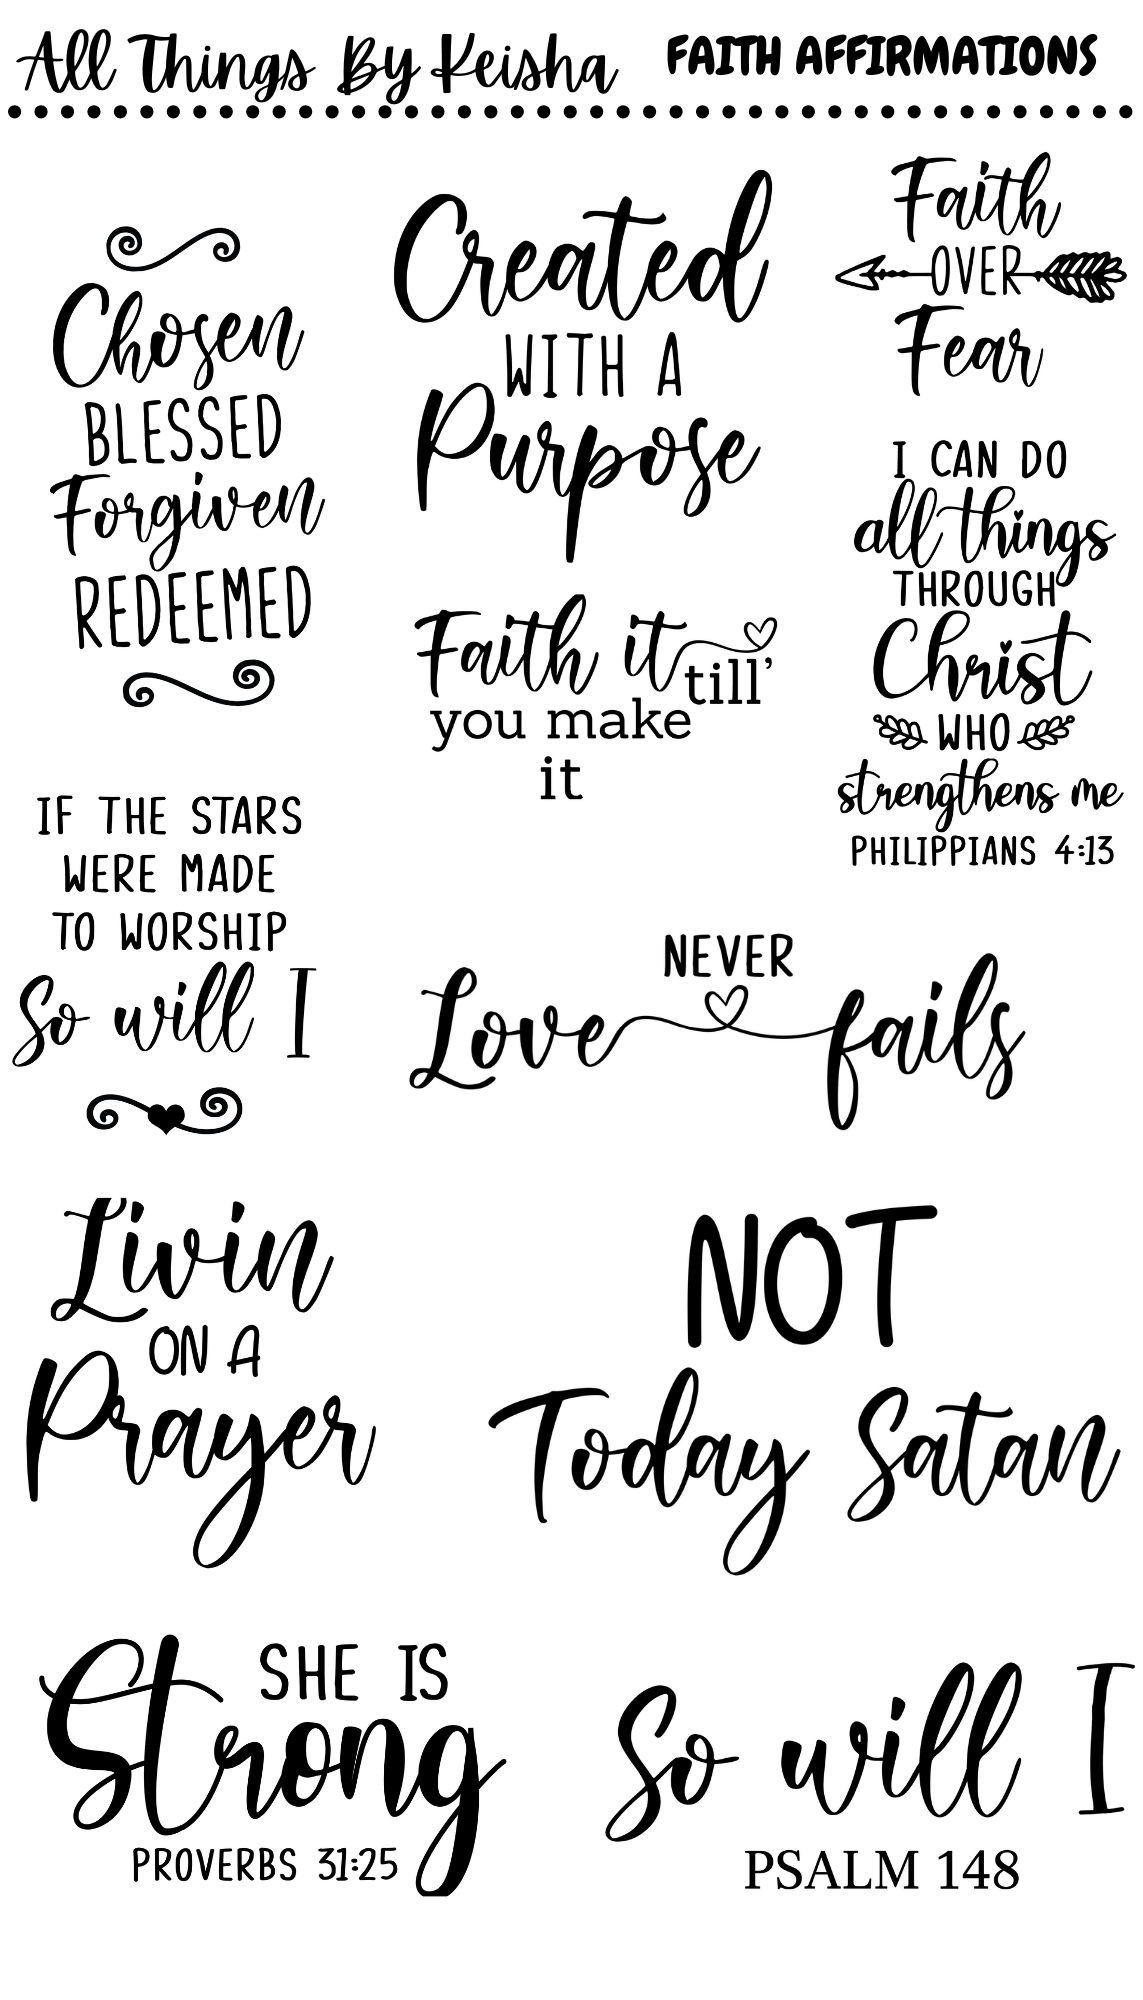 All Things By Keisha
FAITH AFFIRMATIONS
Chosen
BLESSED
Forgiven
REDEEMED
Created
WITH A
Purpose
Faith
OVER
Fear
I CAN DO
all things
THROUGH
Christ
WHO
strengthens me
PHILIPPIANS 4:13
Faith it till'
you make
it
IF THE STARS
WERE MADE
TO WORSHIP
So will I
Love NEVER fails
Livin
ON A
Prayer
NOT
Today Satan
SHE IS
Strong
PROVERBS 31:25
So will I
PSALM 148